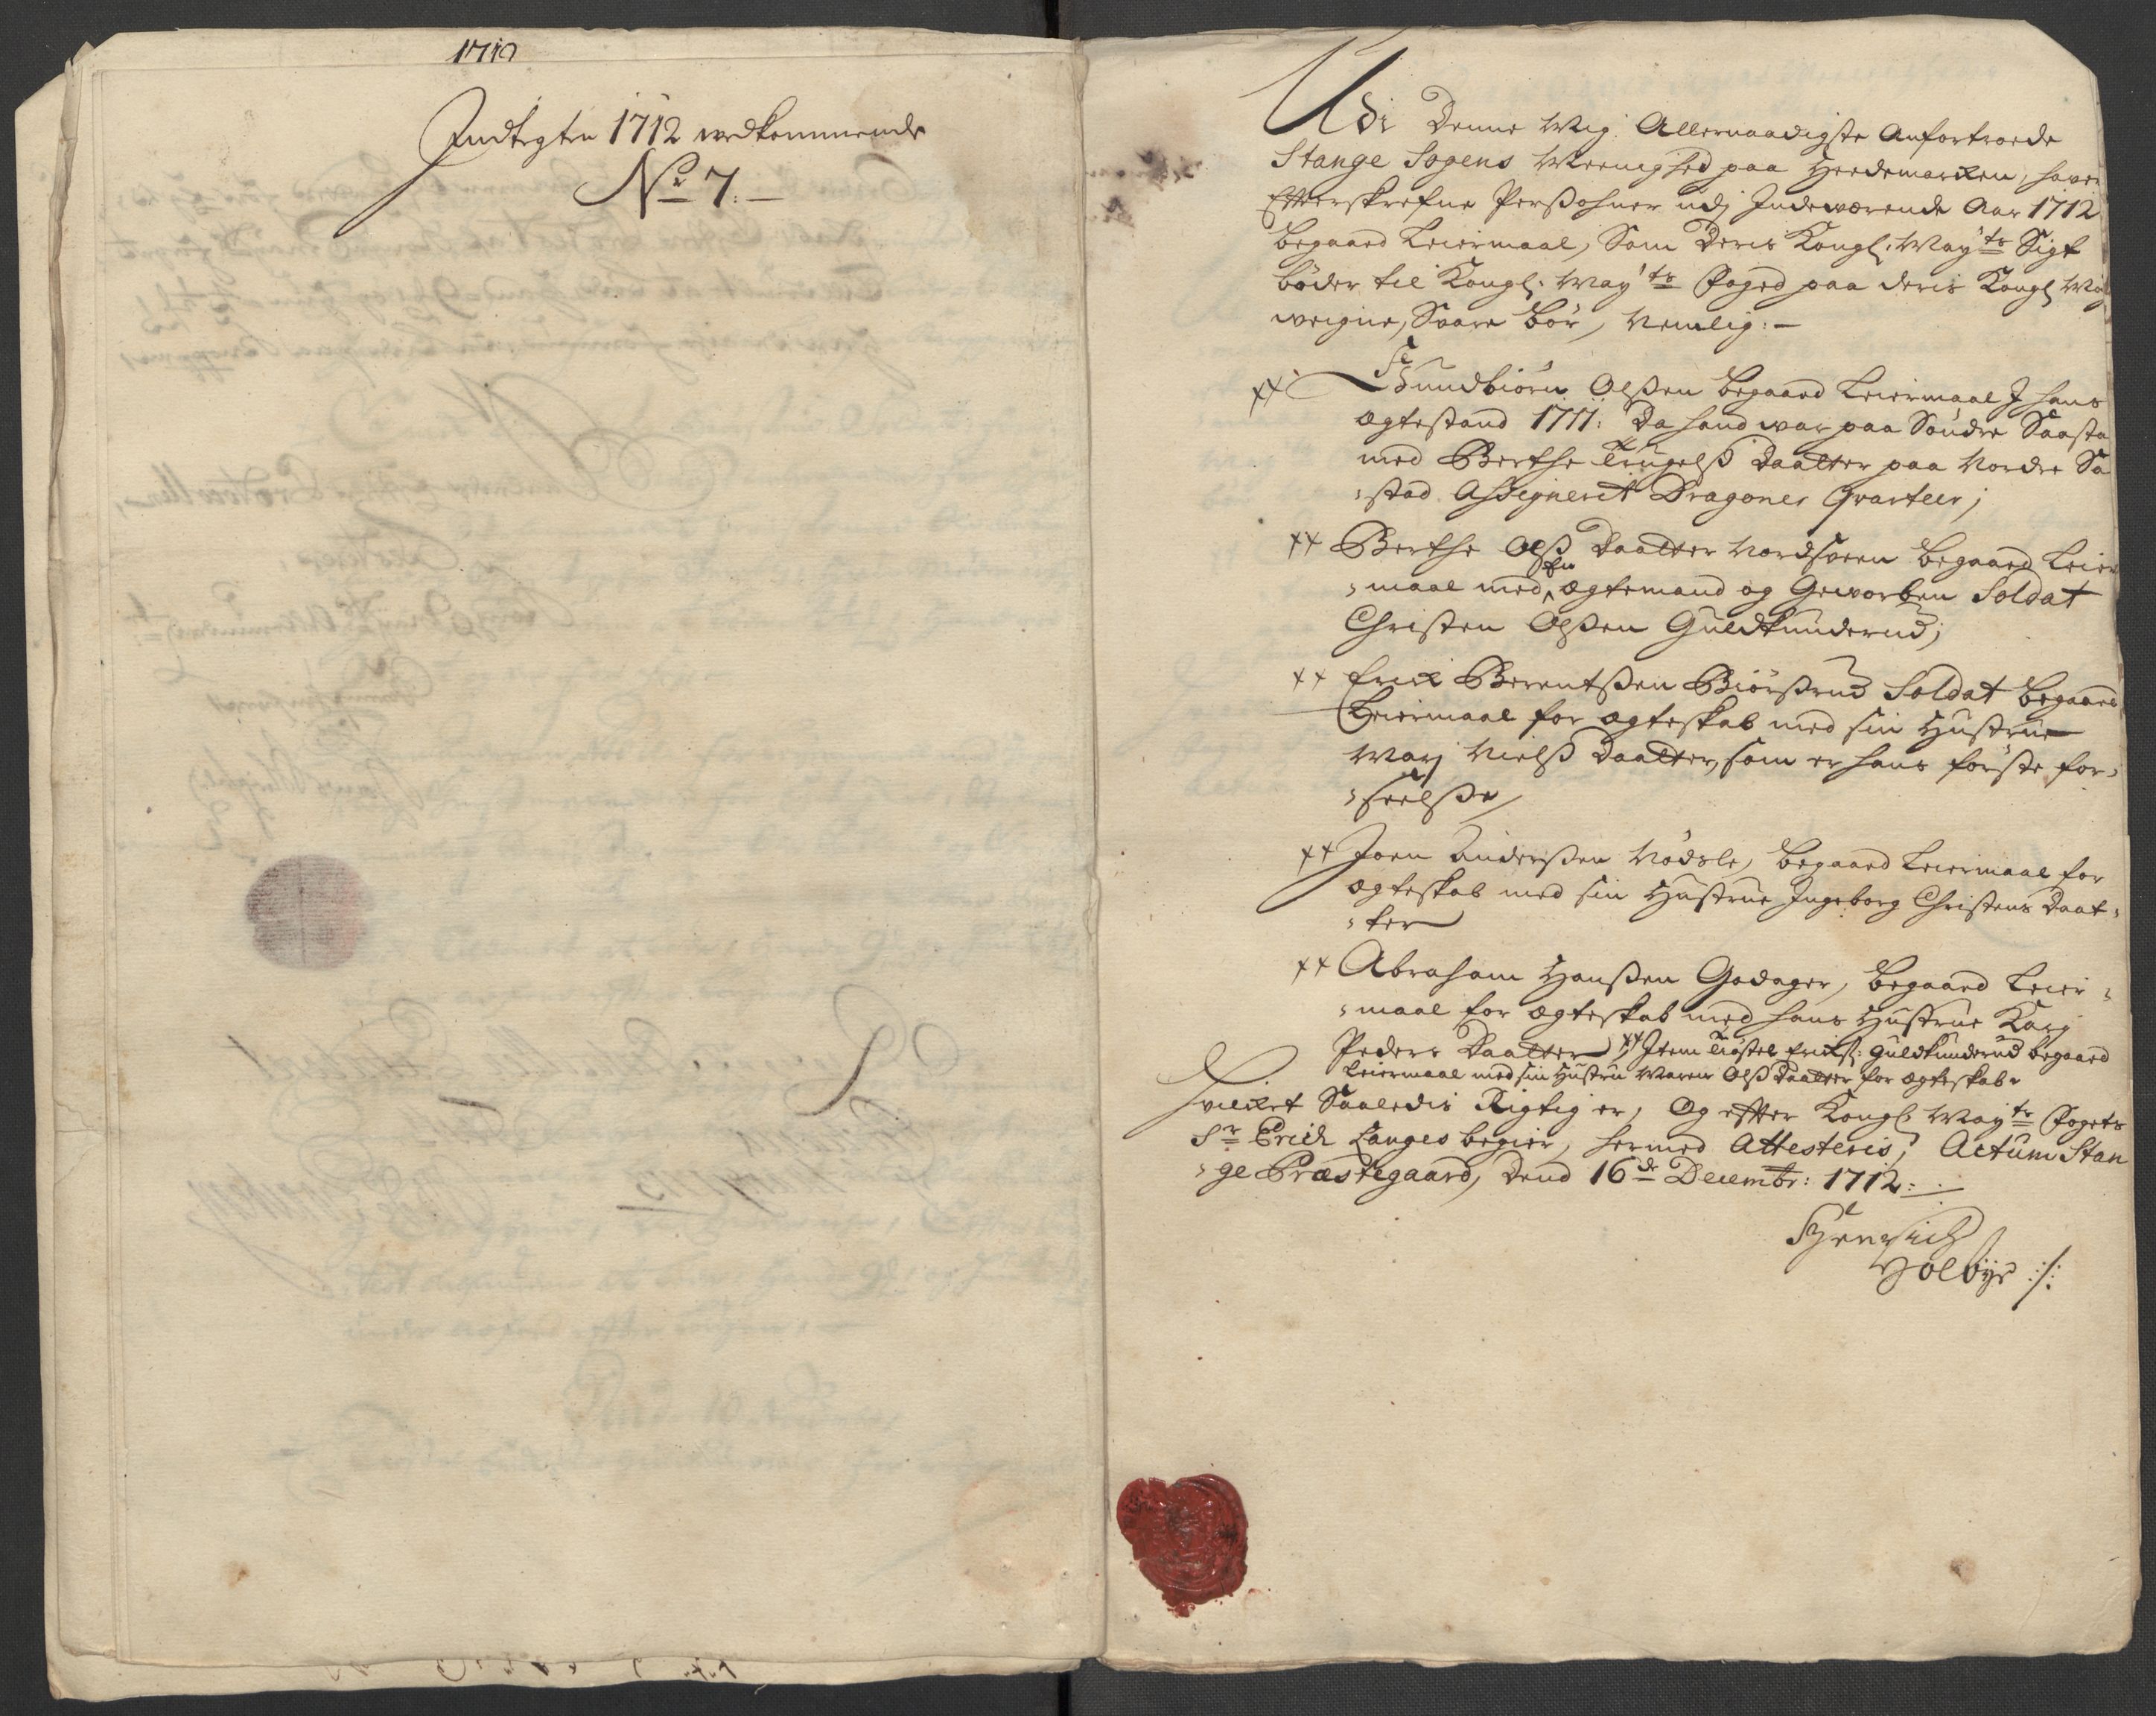 1712
Indtegten 1712 vedkommende
No 7.
Udi Denne Mig Allernaadigste Anfortroede
Stange Sogens Meenighed paa Heedemarcken, haver
Effterskrefne Perßohner udj Indeværende Aar 1712
begaaed Leiermaal, Som Deris Kongl: May:ts Sigt
böder til Kongl: May:ts Foged paa deris Kongl May
veigne, Svare bör, Nemlig:
xx Gundbiörn Olßen begaaed Leiermaal J hans
ægtestand 1711: Da hand var paa Söndre Saasta
med Berthe Trugelß Daatter paa Nordre Sa
stad Assigneret Dragoner Qvarteer;
xx Berthe Olß Daatter Nordsveen begaaed Leier
maal med en ægtemand og Geworben Soldat
Christen Olßen Guldkunderud;
xx Erich Berentßen Biörßrud Soldat begaaed
Leiermaal for ægteskab med sin Hustrue
Marj Nielß Daatter, som er hans förste for-
seelße
xx Joen Anderßen Nödsle, begaaed Leiermaal for
ægteskab med sin Hustrue Ingeborg Christens Daat-
ter
xx Abraham Hanßen Godager, begaaed Leier-
maal for ægteskab med hans Hustrue Karj
Peders Daatter xx Item Tröstel Erichß: Guldkunderud begaaed
Leiermaal med sin Hustru Maren Olß Daatter for ægteskab
Hvilcket Saaledis Rigtig er, Og effter Kongl: May:ts Fogets
Sr Erich Langes begier, hermed Attesteris, Actum Stan
ge Præstegaard, Dend 16de Decembr: 1712:
Hendrich
Holbye